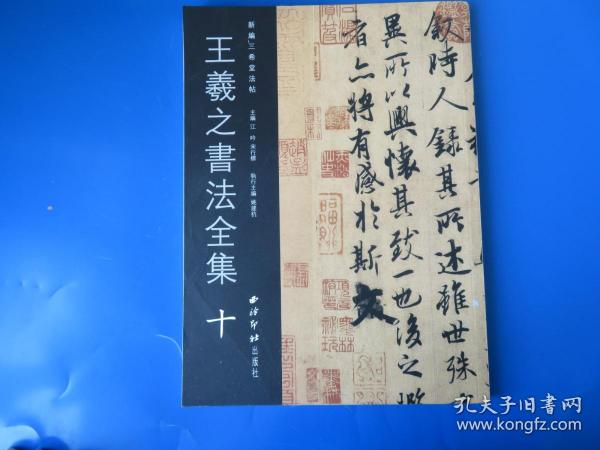 新編三希堂法帖
王羲之書法全集 十
主編 江吟 朱行標
執行主編 姚建杭
西泠印社出版社
叙時人録其所述雖世殊
異所以興懷其致一也後之
者亦將有感於斯文
孔夫子旧书网
www.kongfz.com